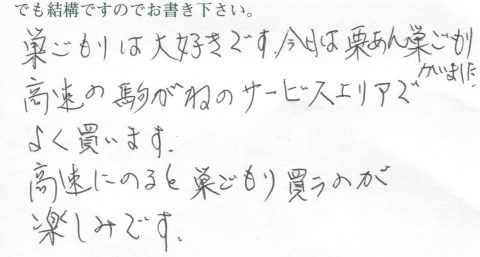 でも結構ですのでお書き下さい。
巣ごもりは大好きです。今日は栗あん巣ごもり
かいました。
高速の駒がねのサービスエリアで
よく買います。
高速にのると巣ごもり買うのが
楽しみです。